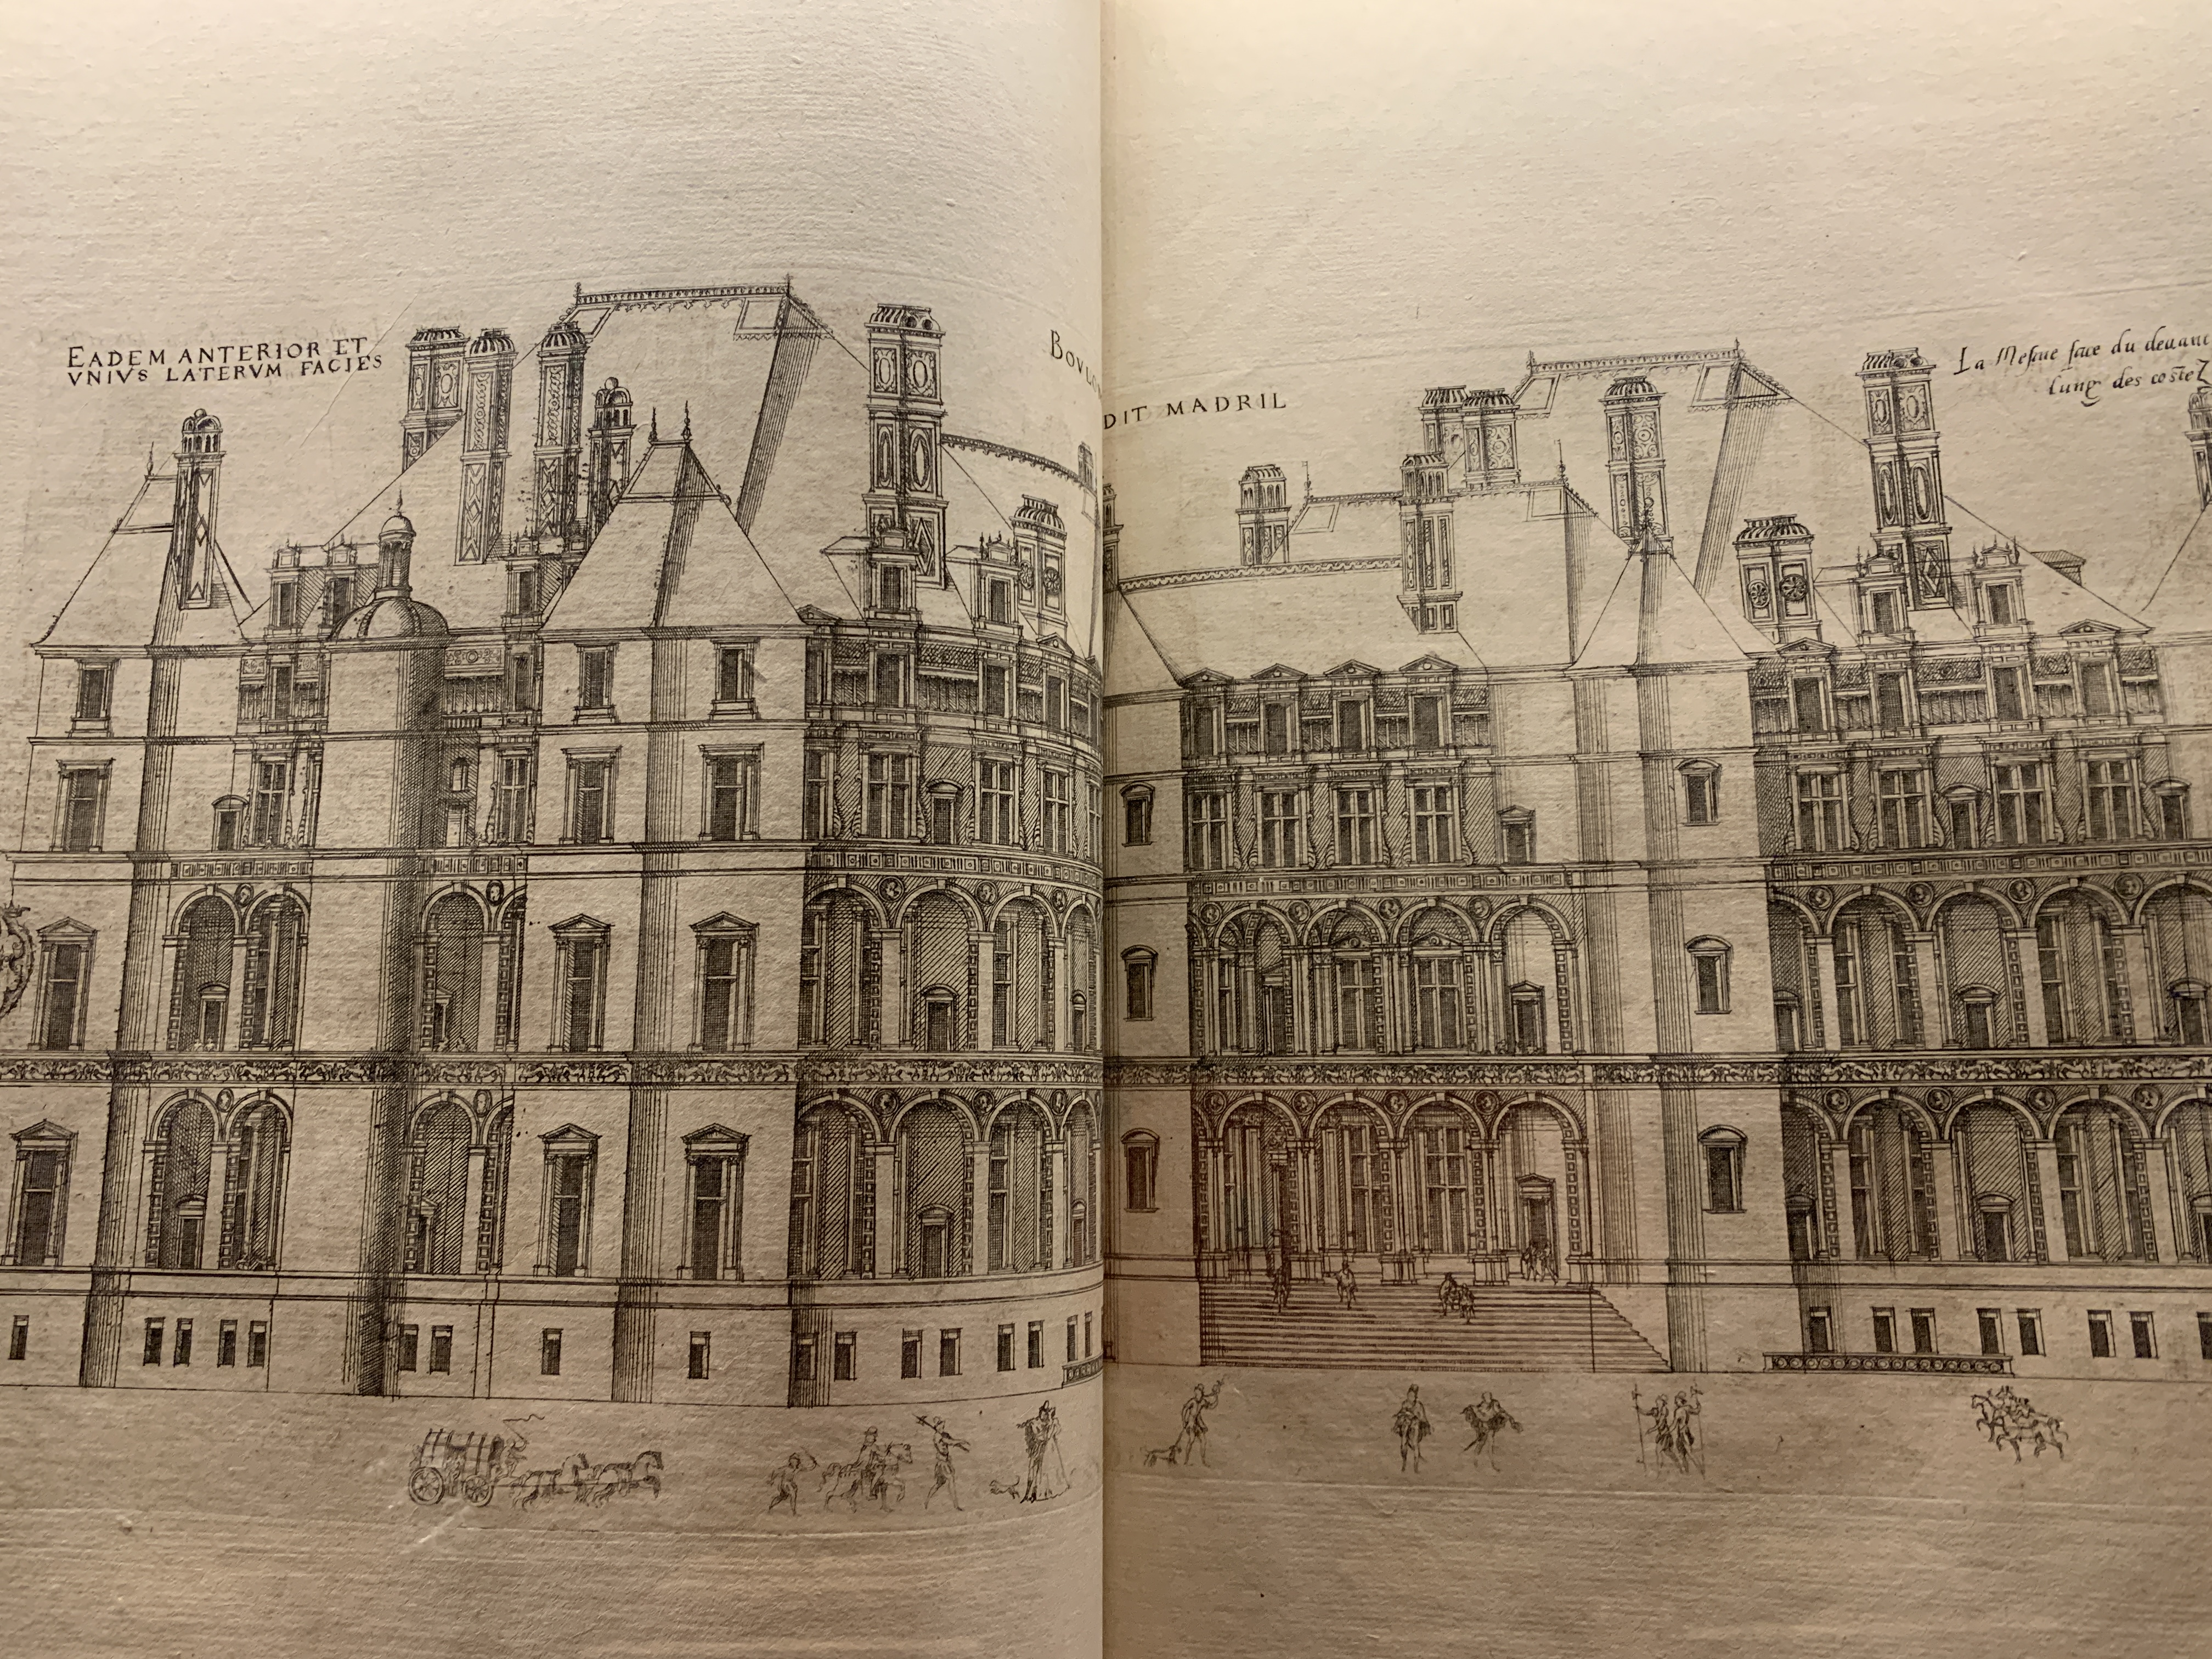 EADEM ANTERIOR ET
VNIVS LATERVM FACIES
DIT MADRIL
La Mesme face du deuant
lung des costez